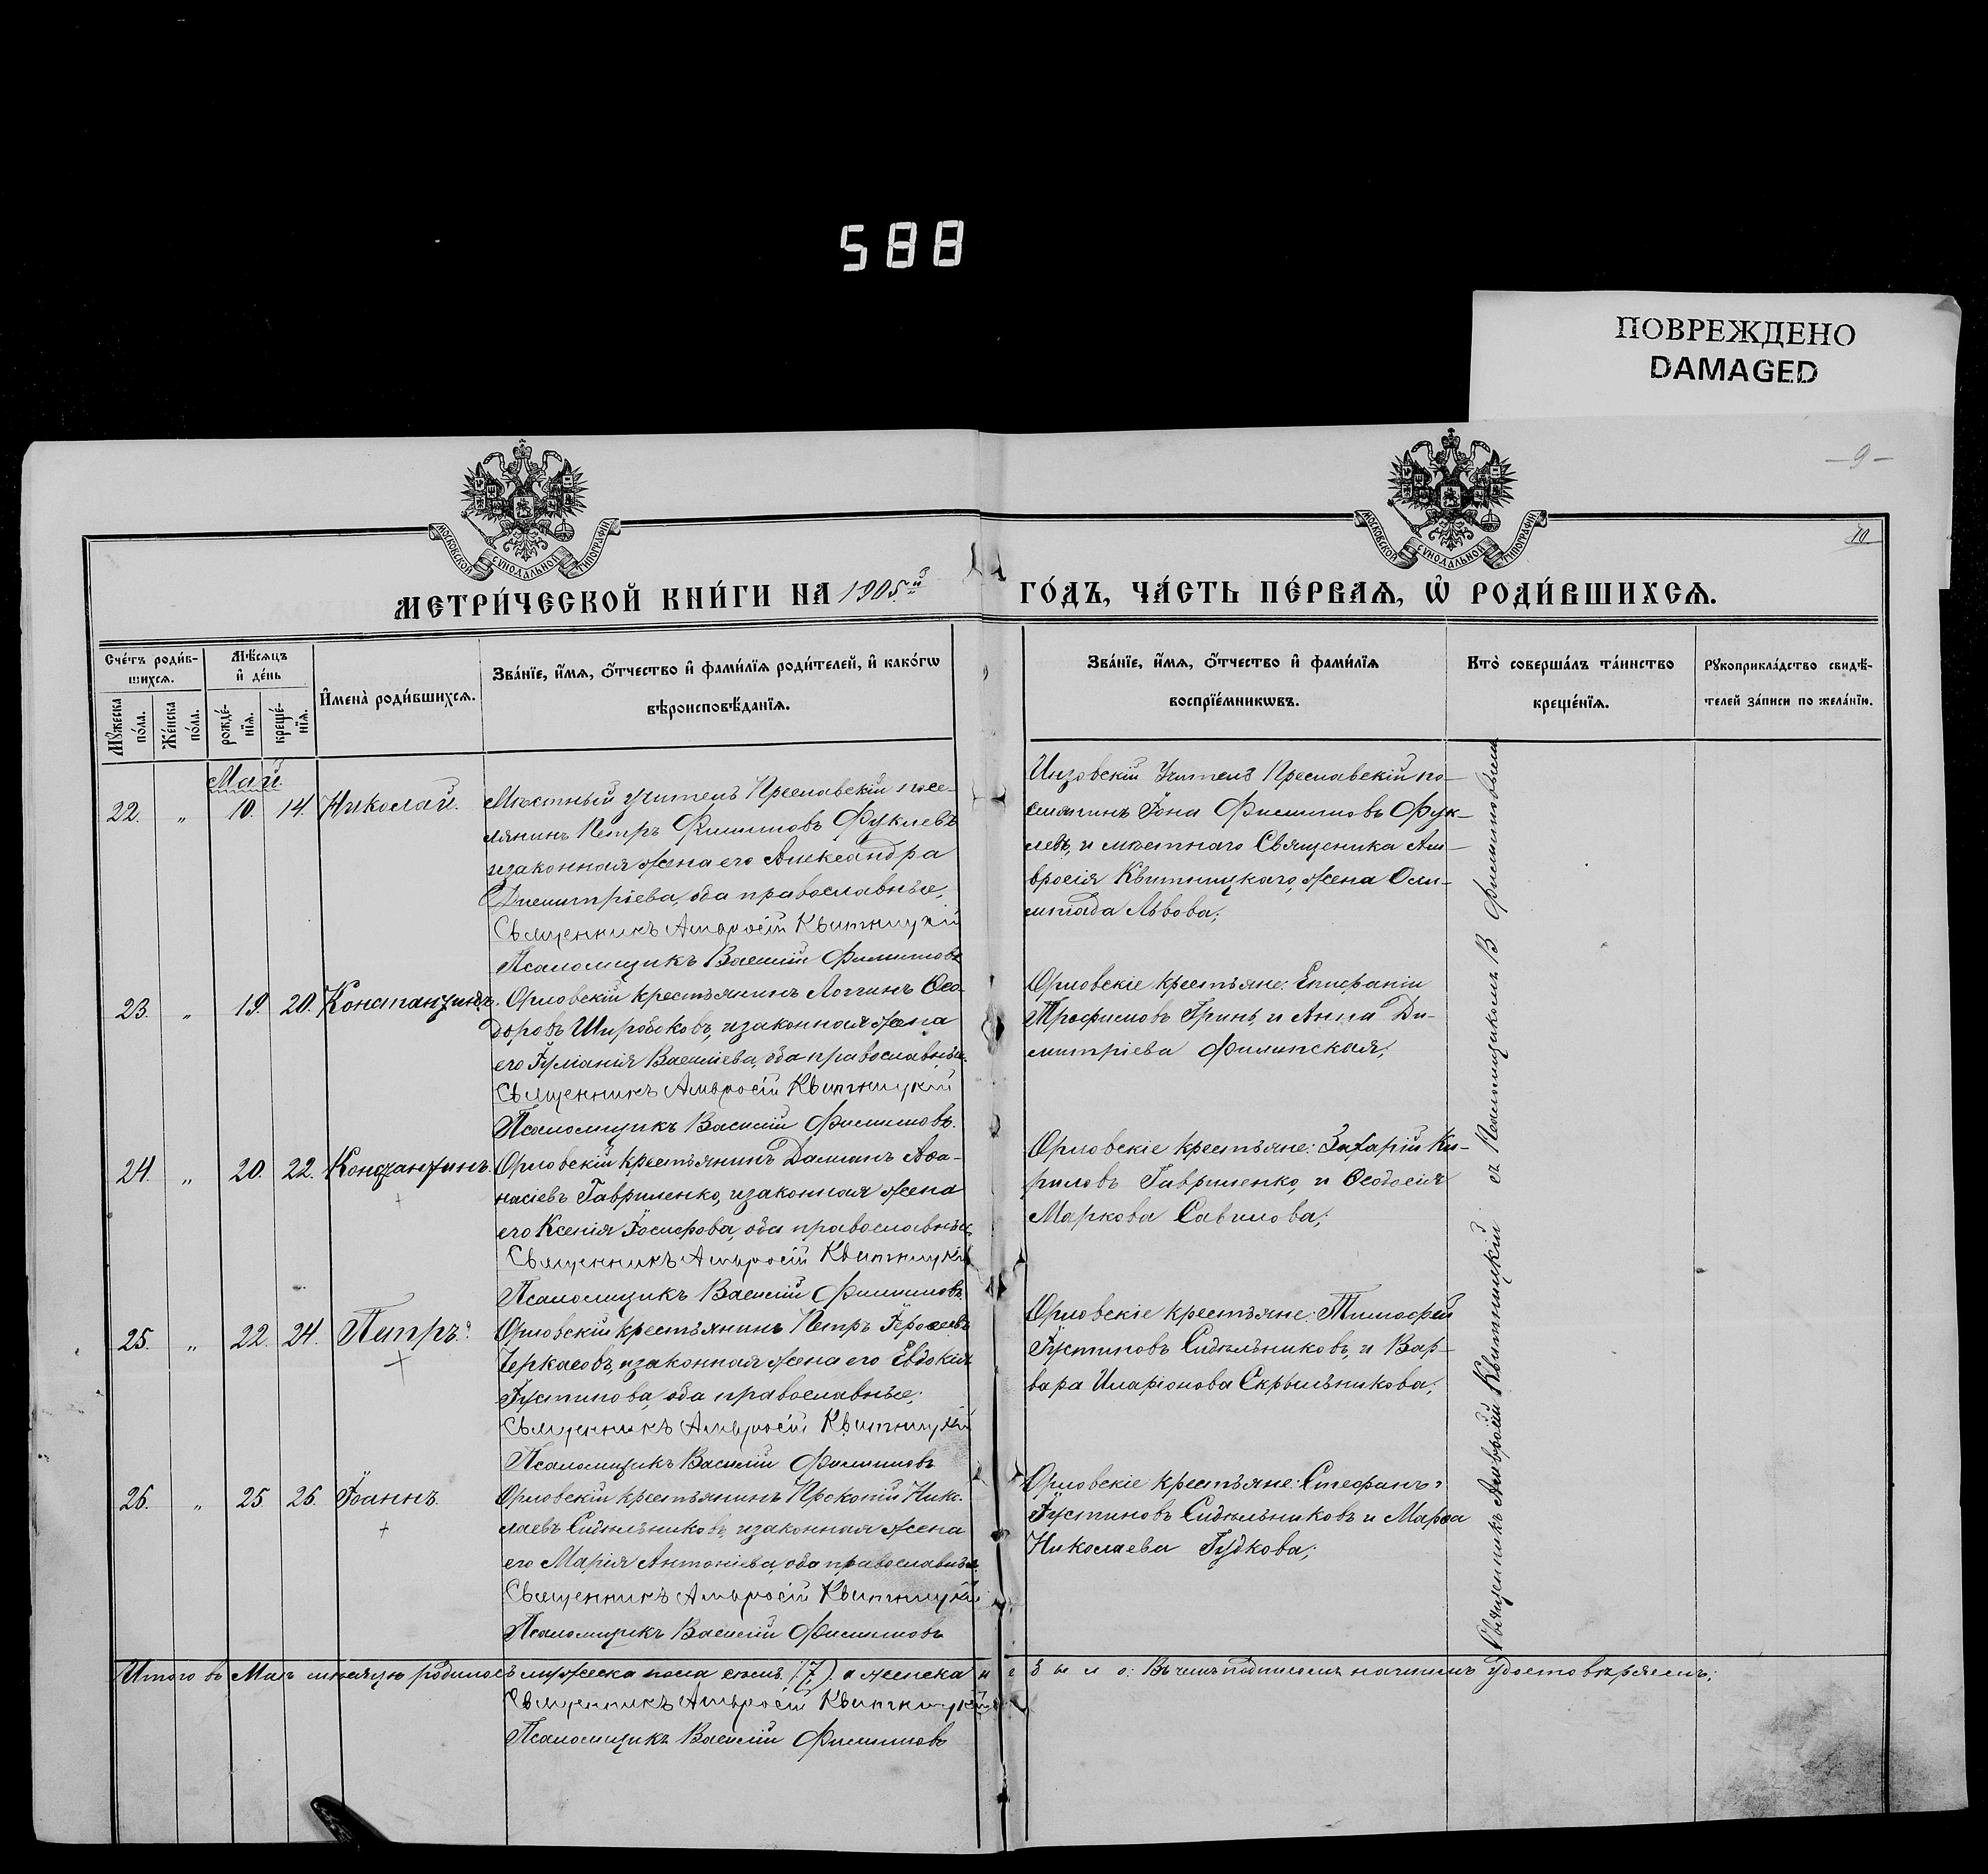 588
ПОВРЕЖДЕНО
DAMAGED
—9—
10
МОСКОВСКОЙ СѴНОДАЛЬНОЙ ТИПОГРАФІИ
МОСКОВСКОЙ СѴНОДАЛЬНОЙ ТИПОГРАФІИ
МЕТРИ́ЧЕСКОЙ КНИ́ГИ НА 1905й ГО́ДЪ, ЧА́СТЬ ПЕ́РВАѦ, Ѡ҆ РОДИ́ВШИХСѦ.
Сче́тъ роди́в-
шихсѧ.
Мѣ́сѧцъ
и҆ де́нь
Мꙋ́жеска
по́ла.
Же́нска
по́ла.
рожде́-
нїѧ.
креще́-
нїѧ.
И҆мена̀ роди́вшихсѧ.
Зва́нїе, и҆́мѧ, ѻ҆́тчество и҆ фами́лїѧ роди́телей, и҆ како́гѡ
вѣроисповѣ́данїѧ.
Зва́нїе, и҆́мѧ, ѻ҆́тчество и҆ фами́лїѧ
воспрїе́мникѡвъ.
Кто̀ соверша́лъ та́инство
креще́нїѧ.
Рꙋкоприкла́дство свидѣ́-
телей за́писи по жела́нїю.
Май.
22. „ 10. 14. Николай.
Мѣстный учитель Преславскій посе-
лянинъ Петръ Филипповъ Фуклевъ
изаконная жена его Александра
Димитріева, оба православные,
Священникъ Амвросій Квитницкій
Псаломщикъ Василій Филипповъ
Инзовскій Учитель Преславскій по-
селянинъ Іона Филипповъ Фук-
левъ, и мѣстнаго Священика Ам-
вросія Квитницкаго, жена Оли-
мпіада Львова;
23. „ 19. 20. Константинъ.
Орловскій крестьянинъ Логгинъ Ѳео-
доровъ Широбоковъ, изаконная жена
его Іуліанія Василіева, оба православные.
Священникъ Амвросій Квитницкій
Псаломщикъ Василій Филипповъ.
Орловскіе крестьяне: Епифаній
Трофимовъ Гринь, и Анна Ди-
митріева Филинская;
24. „ 20. 22. Константинъ.
Орловскій крестьянинъ Даміанъ Аѳа-
насіевъ Гавриленко, изаконная жена
его Ксенія Іосифова, оба православные
Священникъ Амвросій Квитницкій
Псаломщикъ Василій Филипповъ.
Орловскіе крестьяне: Захарій Ки-
риловъ Гавриленко, и Ѳеодосія
Маркова Савилова;
25. „ 22. 24. Петръ.
Орловскій крестьянинъ Петръ Іероѳеевъ
Черкасовъ, изаконная жена его Евдокія
Іустинова, оба православные;
Священникъ Амвросій Квитницкій
Псаломщикъ Василій Филипповъ
Орловскіе крестьяне: Тимофей
Іустиновъ Сидѣльниковъ, и Вар-
вара Иларіонова Скрыльникова;
26. „ 25. 26. Іоаннъ.
Орловскій крестьянинъ Прокопій Нико-
лаевъ Сидѣльниковъ, изаконная жена
его Марія Антоніева, оба православные.
Священникъ Амвросій Квитницкій
Псаломщикъ Василій Филипповъ
Орловскіе крестьяне: Стефанъ
Іустиновъ Сидѣльниковъ и Марѳа
Николаева Гудкова;
Священникъ Амвросій Квитницкій съ Псаломщикомъ В Филипповымъ
Итого въ Маѣ мѣсяцѣ родилось мужеска пола семь (7), а женска не было: Въ чемъ подписомъ нашимъ удостовѣряемъ;
Священникъ Амвросій Квитницкій
Псаломщикъ Василій Филипповъ